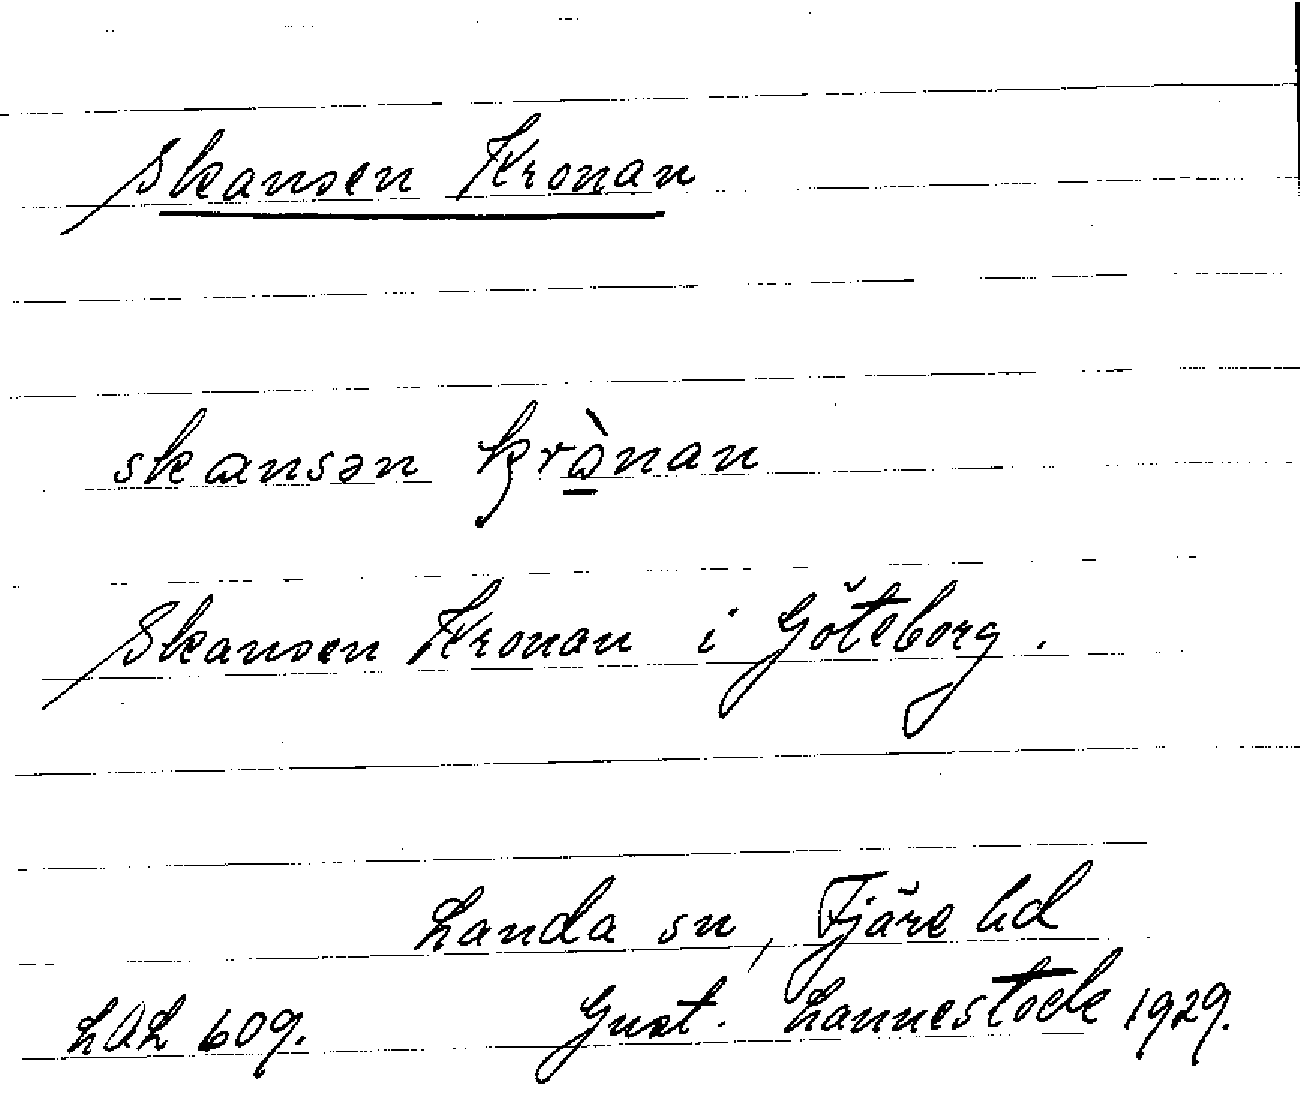 Skansen Kronan
skansən krònan
Skansen Kronan i Göteborg.
Landa sn, Fjäre hd
LAL 609. Gust. Lannestock 1929.